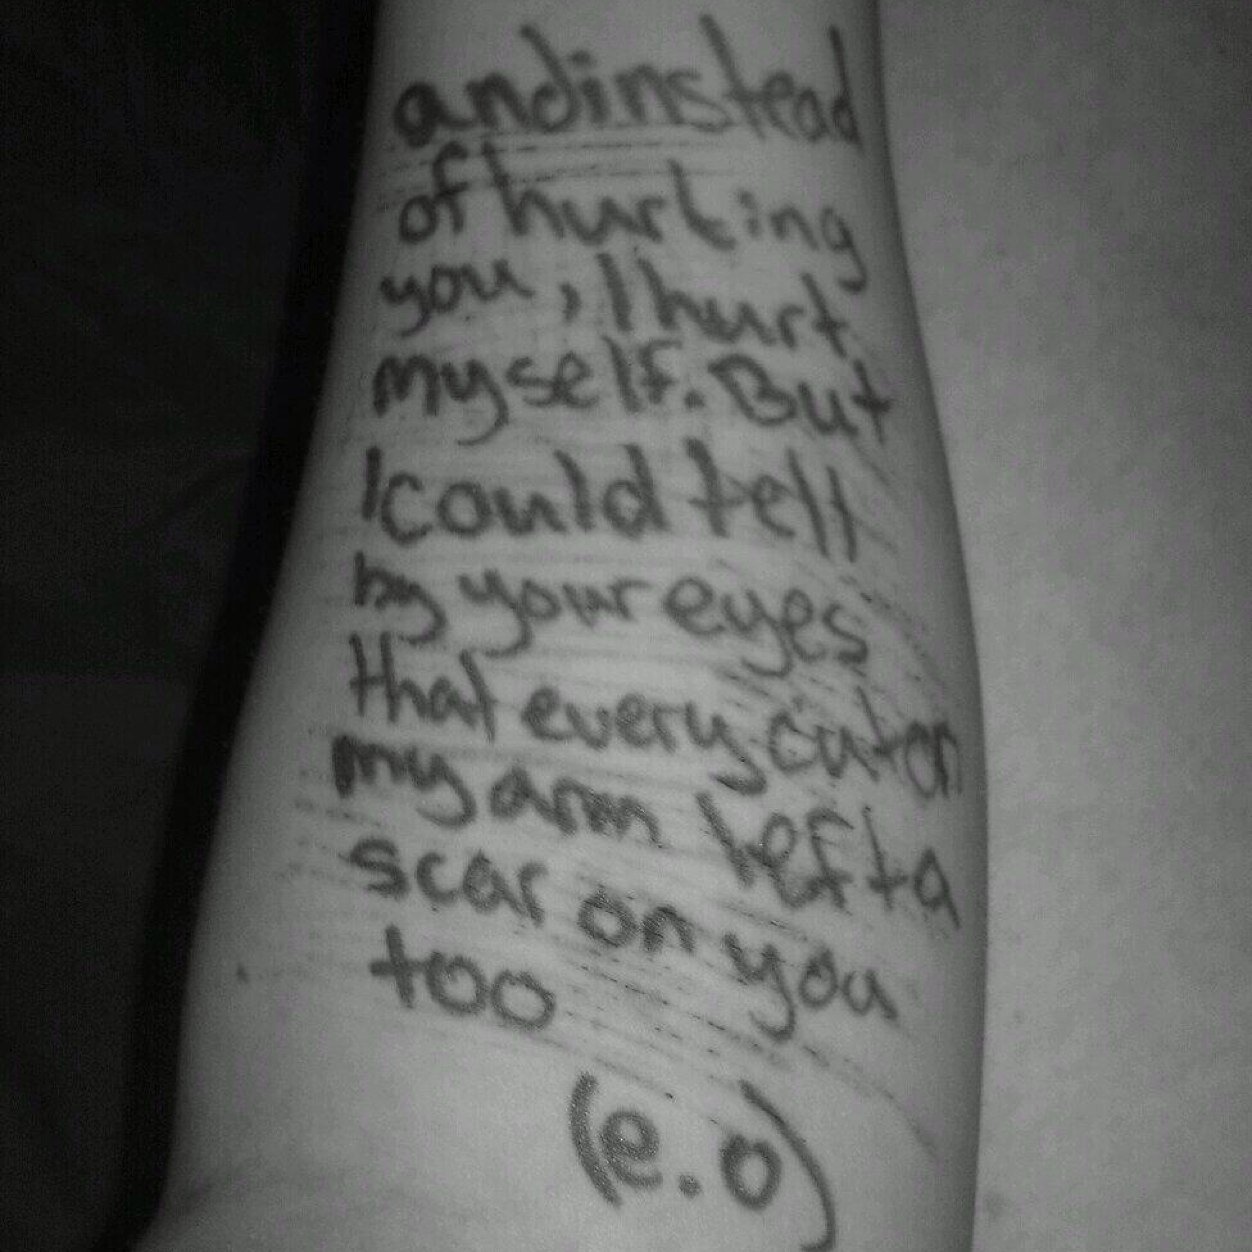 and instead
of hurting
you, I hurt
myself. But
I could tell
by your eyes
that every cut on
my arm left a
scar on you
too
(e.o)